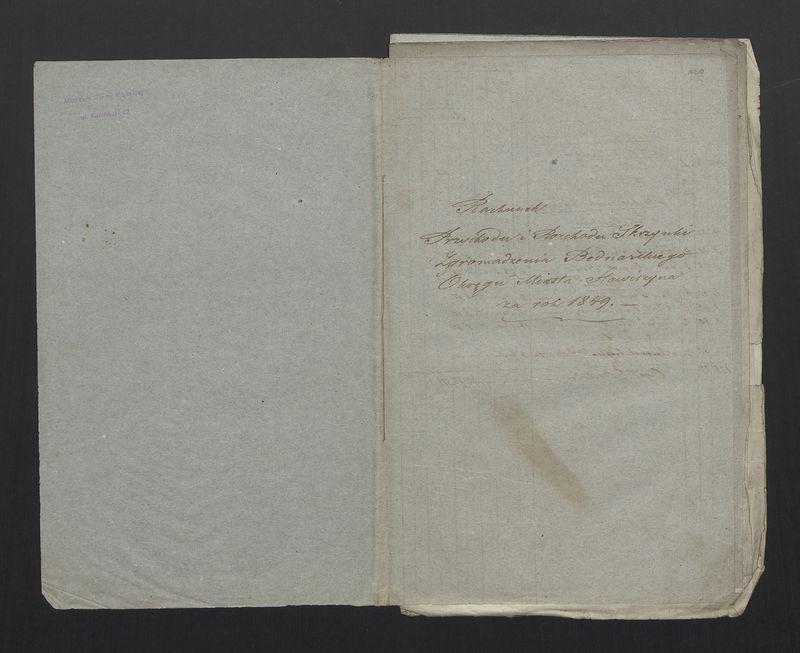 Rachunek
Przychodu i Rozchodu Skrzynki
Zgromadzenia Bednarskiego
Okręgu Miasta Stawiszyna
za rok 1849. —